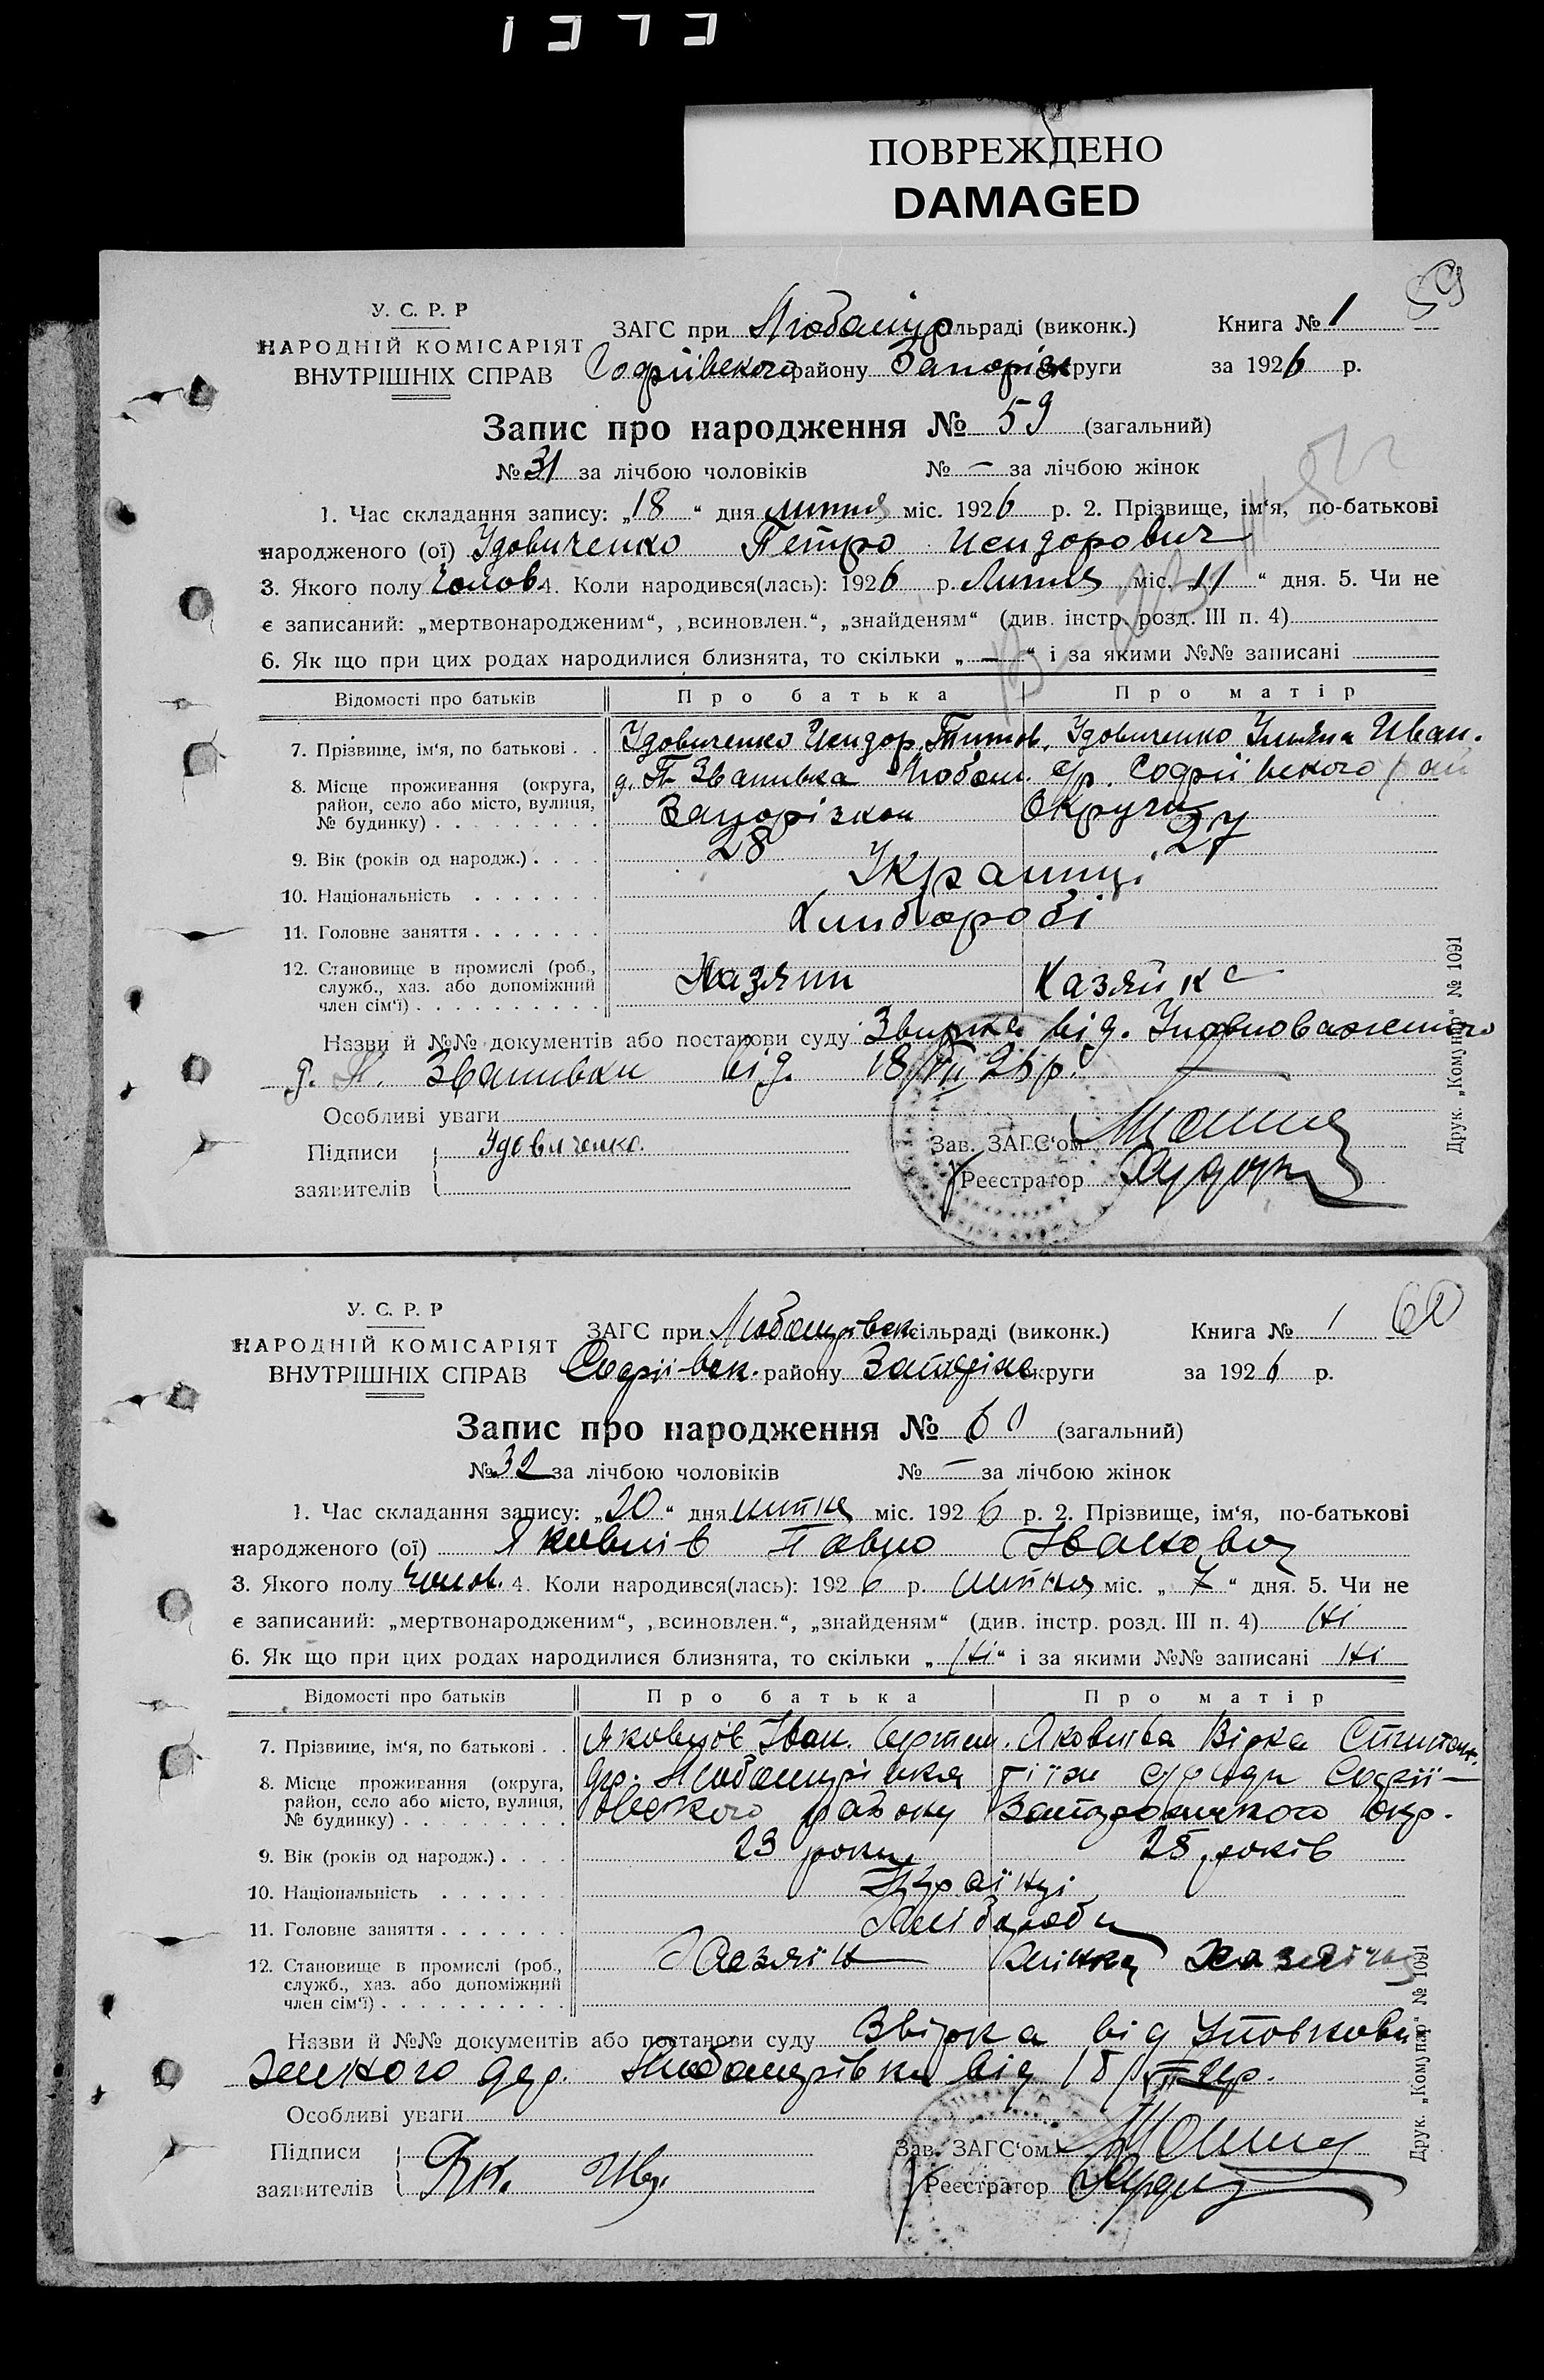 ПОВРЕЖДЕНО
DAMAGED
59
У. С. Р. Р
НАРОДНІЙ КОМІСАРІЯТ
ВНУТРІШНІХ СПРАВ
ЗАГС при Любашур льраді (виконк.) Книга № 1
Софріївського району Запоріж круги за 1926 р.
Запис про народження № 59 (загальний)
№ 31 за лічбою чоловіків № — за лічбою жінок
1. Час складання запису: „18“ дня липня міс. 1926 р. 2. Прізвище, ім‘я, по-батькові
народженого (ої) Удовиченко Петро Исидорович
3. Якого полу Чолов 4. Коли народився(лась): 1926 р. Липня міс. „11“ дня. 5. Чи не
є записаний: „мертвонародженим“, „всиновлен.“, „знайденям“ (див. інстр. розд. III п. 4)
6. Як що при цих родах народилися близнята, то скільки „—“ і за якими №№ записані
Відомості про батьків Про батька Про матір
7. Прізвище, ім‘я, по батькові . . Удовиченко Исидор. Титов. Удовиченко Ульяна Иван.
8. Місце проживання (округа, район, село або місто, вулиця, № будинку) д. П. Званивка Любаш. с/р. Софрії вского рай
Запорізкои Округи
9. Вік (років од народж.) 28 27
10. Національність Украинці
11. Головне заняття Хлибороби
12. Становище в промислі (роб., служб., хаз. або допоміжний член сім‘ї) Хазяин Казяйка
Назви й №№ документів або постанови суду Звирка від. Уповноваженого
д. П. Званивки від. 18/VII 26 р.
Особливі уваги
Підписи Удовиченко.
заявителів
Зав. ЗАГС‘ом
Реєстратор
Друк. „Комунар“ № 1091
60
У. С. Р. Р
НАРОДНІЙ КОМІСАРІЯТ
ВНУТРІШНІХ СПРАВ
ЗАГС при Любашрівск сільраді (виконк.) Книга № 1
Софрії-вск. району Запоріж округи за 1926 р.
Запис про народження № 60 (загальний)
№ 32 за лічбою чоловіків № — за лічбою жінок
1. Час складання запису: „20“ дня липня міс. 1926 р. 2. Прізвище, ім‘я, по-батькові
народженого (ої) Яковлів Павло Іванович
3. Якого полу Чолов. 4. Коли народився(лась): 1926 р. липня міс. „7“ дня. 5. Чи не
є записаний: „мертвонародженим“, „всиновлен.“, „знайденям“ (див. інстр. розд. III п. 4) Ні
6. Як що при цих родах народилися близнята, то скільки „Ні“ і за якими №№ записані Ні
Відомості про батьків Про батька Про матір
7. Прізвище, ім‘я, по батькові . . Яковлів Іван. Яковліва Вірка
8. Місце проживання (округа, район, село або місто, вулиця, № будинку) Софрії-
вського району окр.
9. Вік (років од народж.) 23 роки 25 років
10. Національність Українці
11. Головне заняття Хлібороби
12. Становище в промислі (роб., служб., хаз. або допоміжний член сім‘ї) Хазяїн Жінка Хазяїна
Назви й №№ документів або постанови суду Звірка від Уповнова
женого дер. від 18/VII
Особливі уваги
Підписи Як. Ив.
заявителів
Зав. ЗАГС‘ом
Реєстратор
Друк. „Комунар“ № 1091